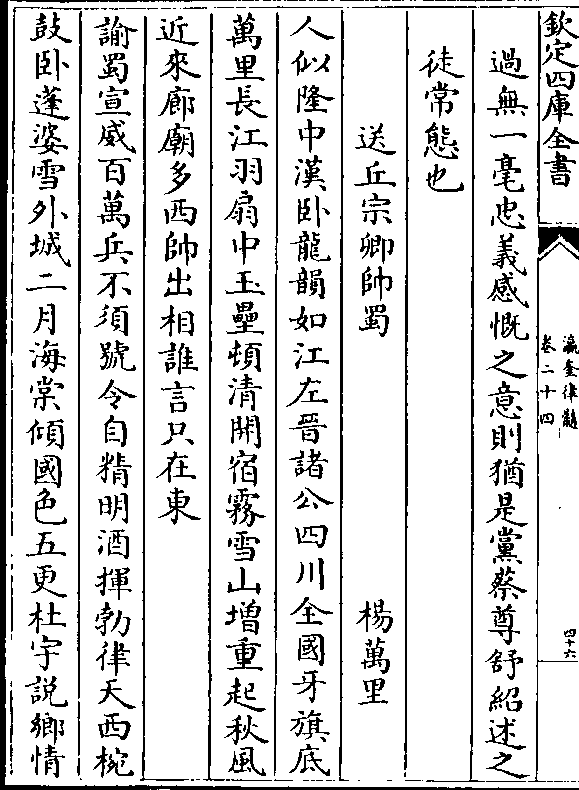 欽定四庫全書
瀛奎律髓
卷二十四
四十六
過無一毫忠義感慨之意則猶是黨蔡尊舒紹述之
徒常態也
送丘宗卿帥蜀　楊萬里
人似隆中漢卧龍韻如江左晉諸公四川全國牙旗底
萬里長江羽扇中玉壘頓清開宿霧雪山增重起秋風
近來廊廟多西帥出相誰言只在東
諭蜀宣威百萬兵不須號令自精明酒揮勃律天西椀
鼓卧蓬婆雪外城二月海棠傾國色五更杜宇説鄉情